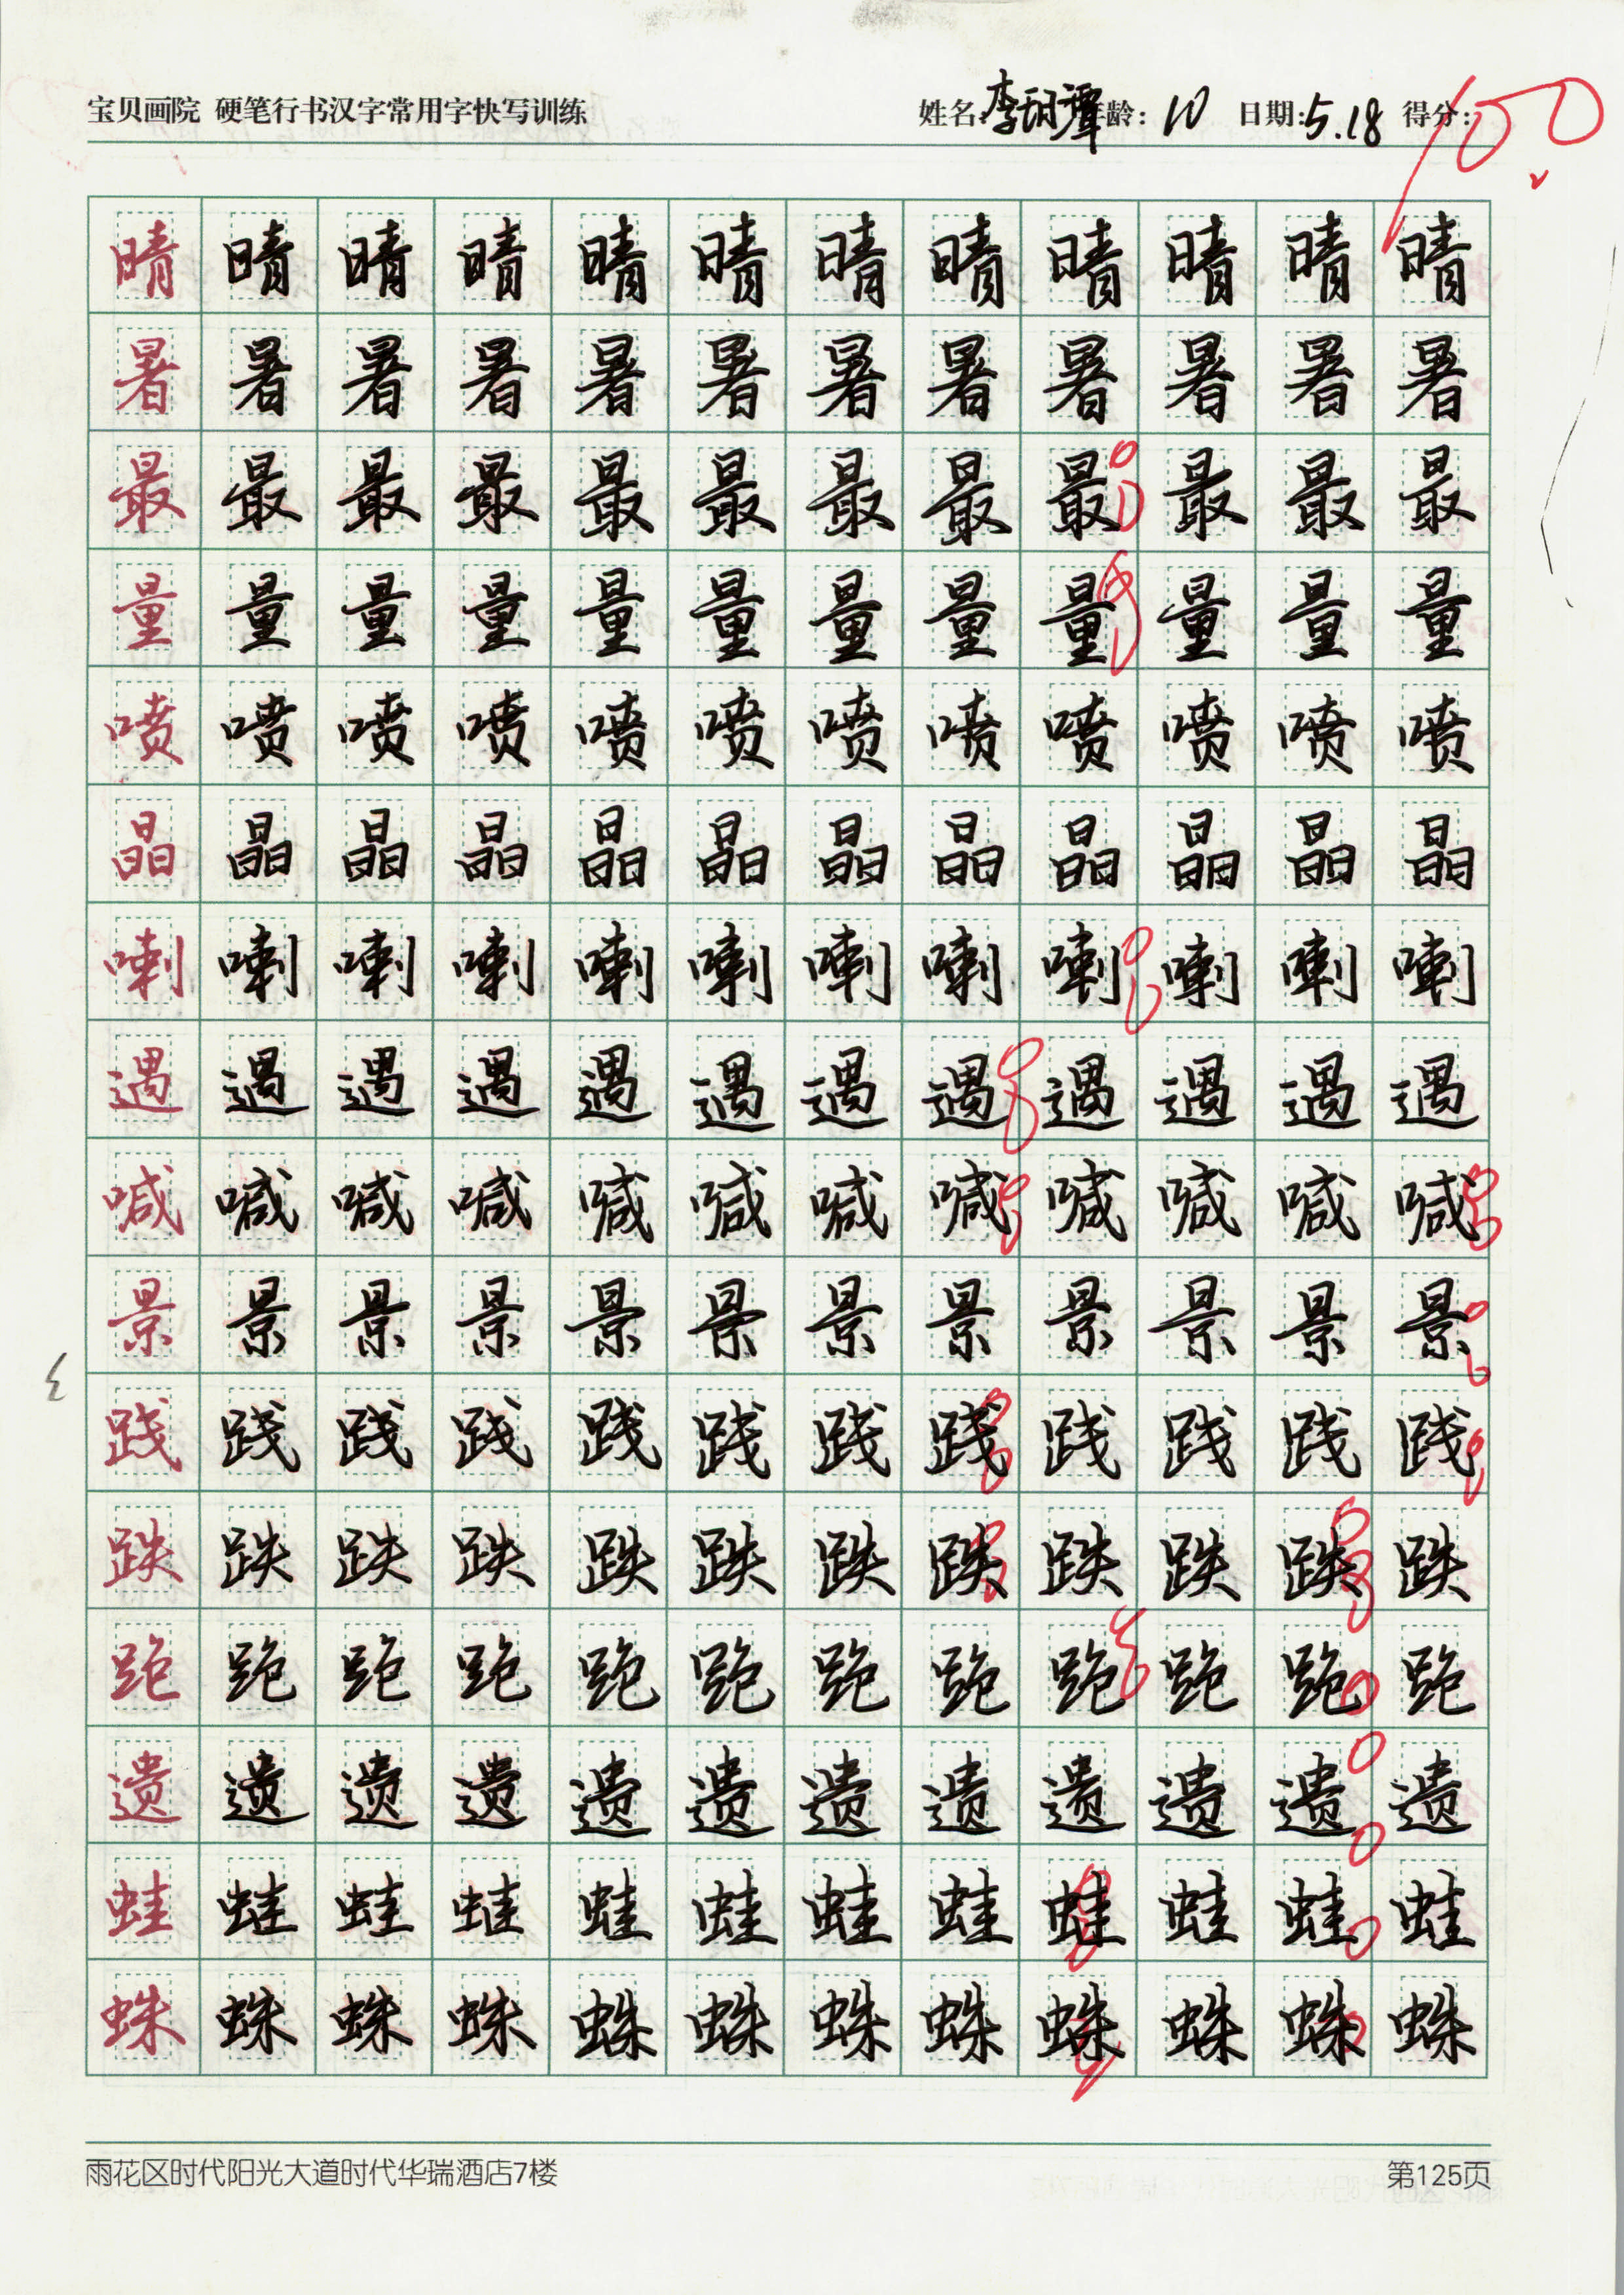 宝贝画院 硬笔行书汉字常用字快写训练 姓名: 李玥潭 年龄: 10 日期: 5.18 得分: 100
晴 晴 晴 晴 晴 晴 晴 晴 晴 晴 晴 晴
暑 暑 暑 暑 暑 暑 暑 暑 暑 暑 暑 暑
最 最 最 最 最 最 最 最 最 最 最 最
量 量 量 量 量 量 量 量 量 量 量 量
喷 喷 喷 喷 喷 喷 喷 喷 喷 喷 喷 喷
晶 晶 晶 晶 晶 晶 晶 晶 晶 晶 晶 晶
喇 喇 喇 喇 喇 喇 喇 喇 喇 喇 喇 喇
遇 遇 遇 遇 遇 遇 遇 遇 遇 遇 遇 遇
喊 喊 喊 喊 喊 喊 喊 喊 喊 喊 喊 喊
景 景 景 景 景 景 景 景 景 景 景 景
践 践 践 践 践 践 践 践 践 践 践 践
跌 跌 跌 跌 跌 跌 跌 跌 跌 跌 跌 跌
跑 跑 跑 跑 跑 跑 跑 跑 跑 跑 跑 跑
遗 遗 遗 遗 遗 遗 遗 遗 遗 遗 遗 遗
蛙 蛙 蛙 蛙 蛙 蛙 蛙 蛙 蛙 蛙 蛙 蛙
蛛 蛛 蛛 蛛 蛛 蛛 蛛 蛛 蛛 蛛 蛛 蛛
雨花区时代阳光大道时代华瑞酒店7楼 第125页